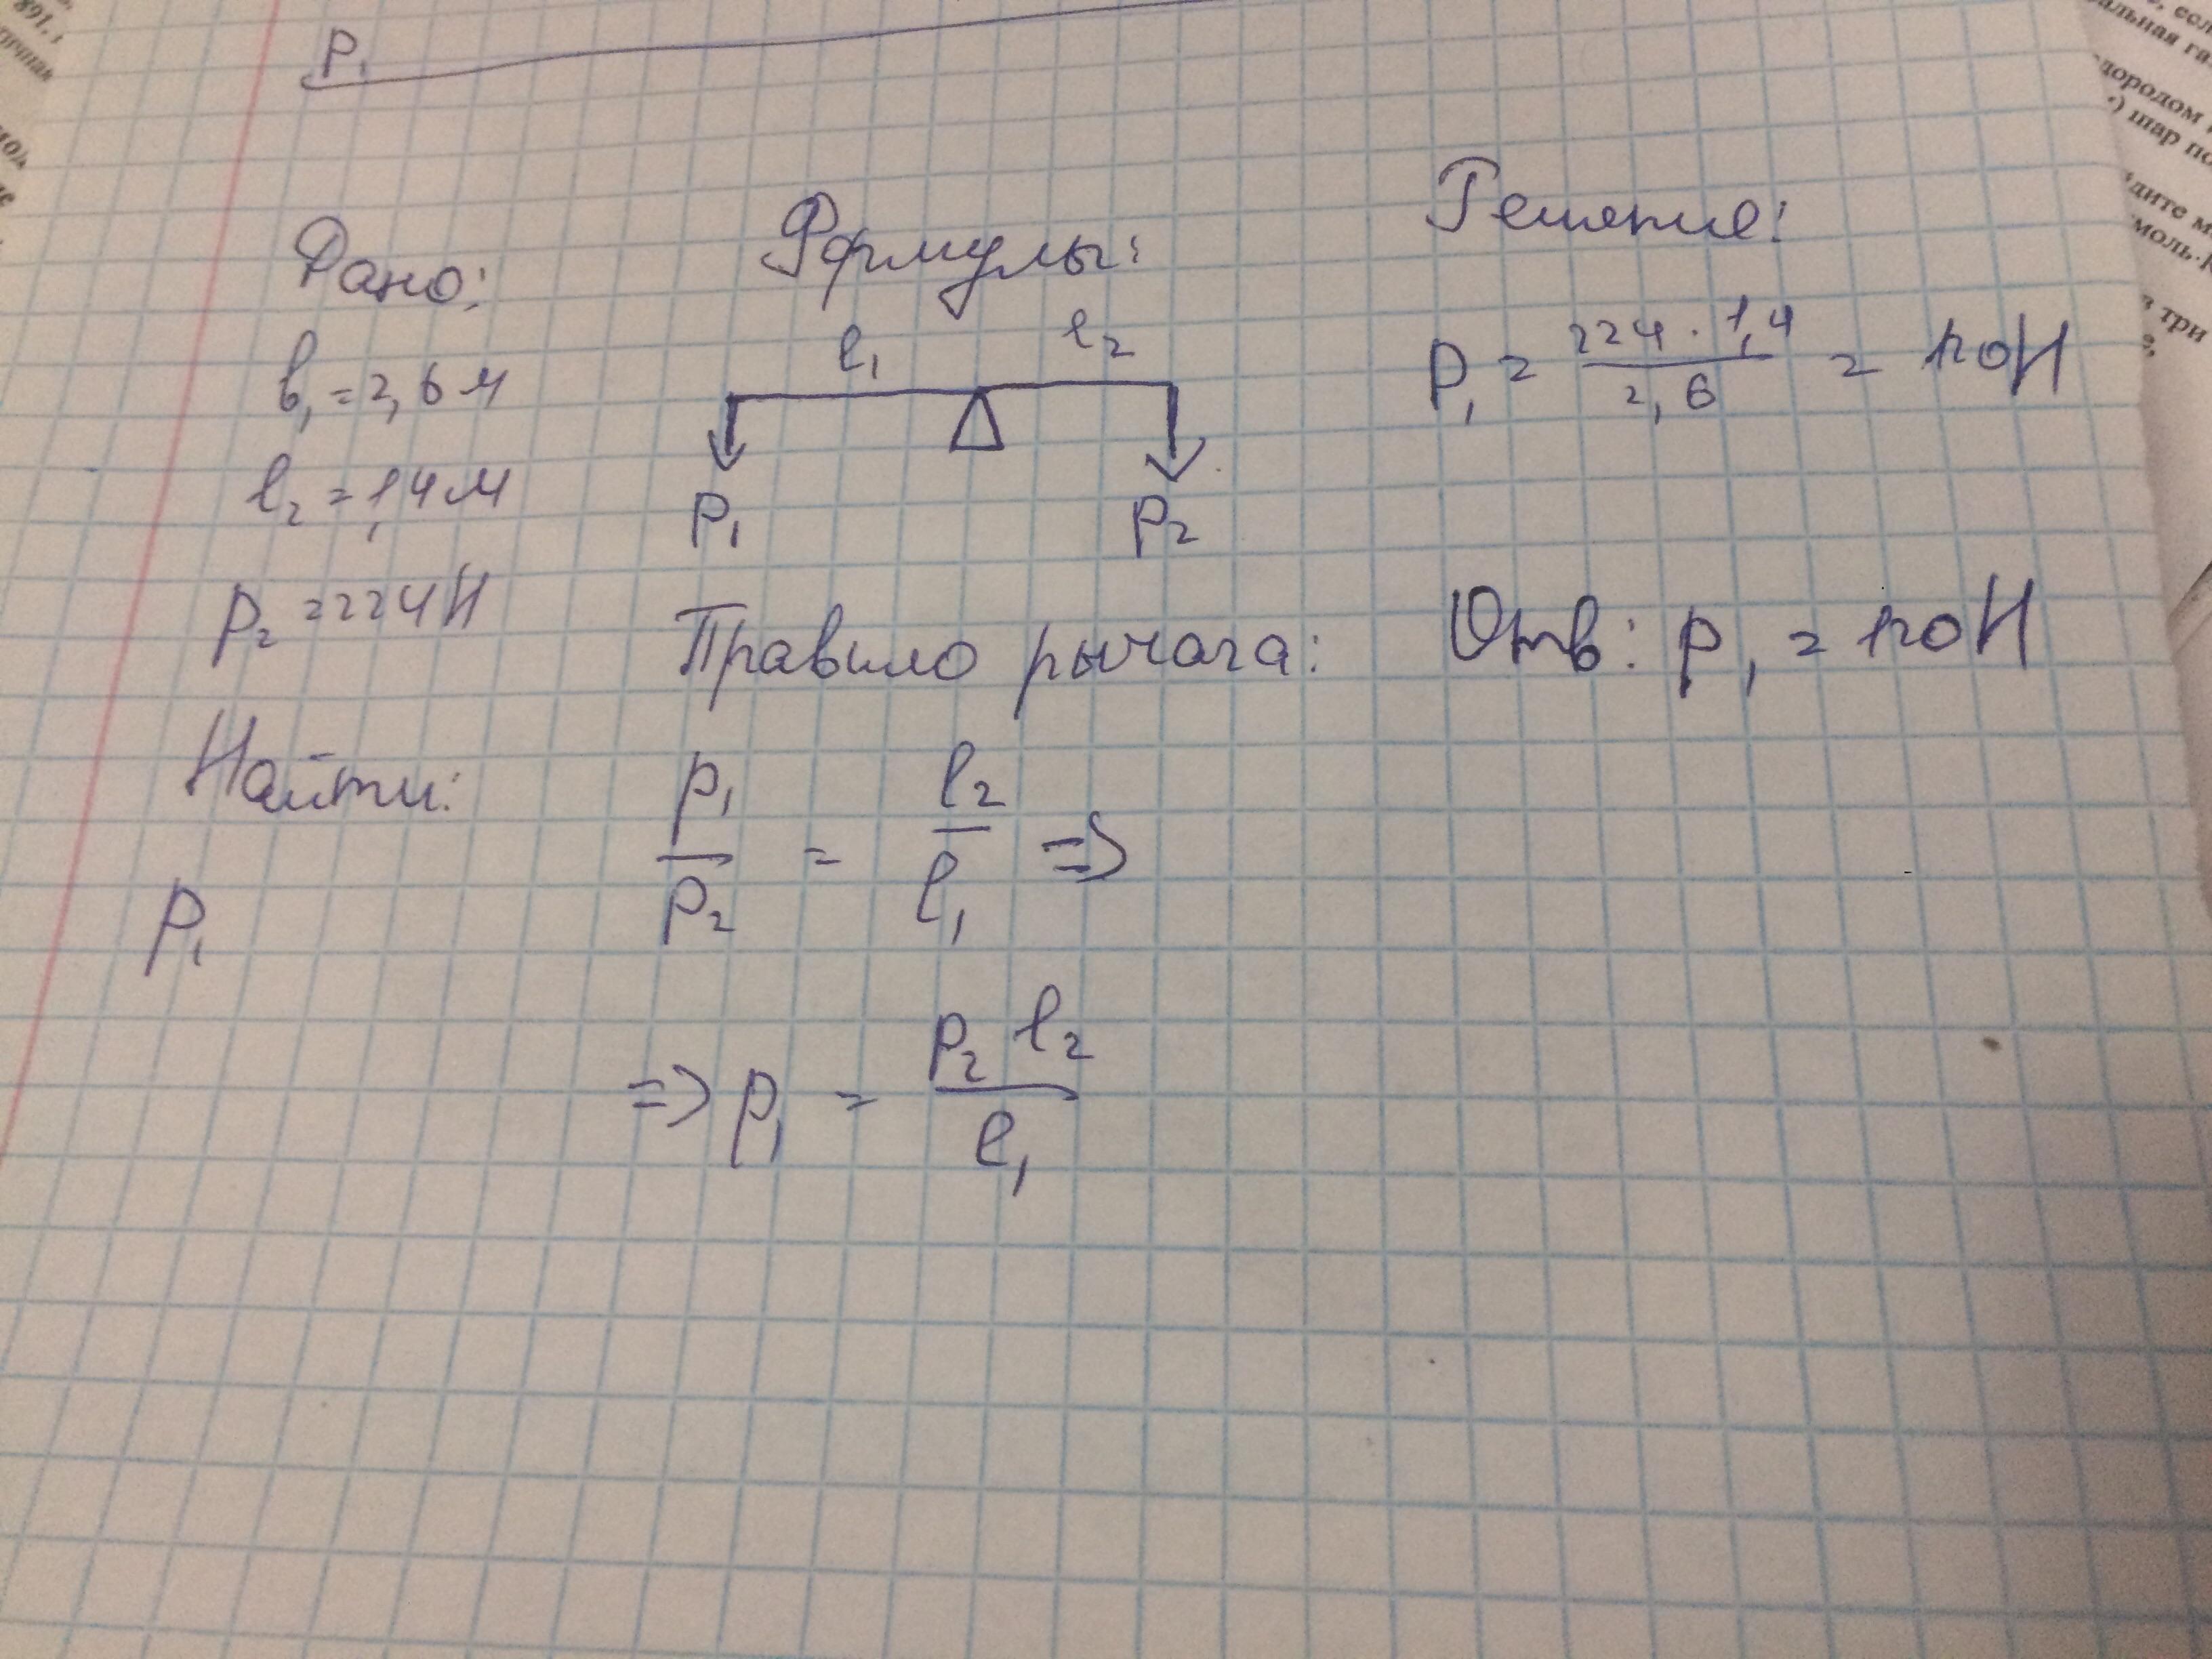 P₁
Дано:
l₁ = 2,6 м
l₂ = 1,4 м
P₂ = 224 Н
Найти:
P₁
Формулы:
l₁ l₂
P₁ P₂
Правило рычага:
P₁/P₂ = l₂/l₁ =>
=> P₁ = P₂ l₂/l₁
Решение:
P₁ = 224 · 1,4/2,6 = 120 Н
Отв: P₁ = 120 Н
891, 1
альная га
дородом
шар по
дите м
моль·К
в три